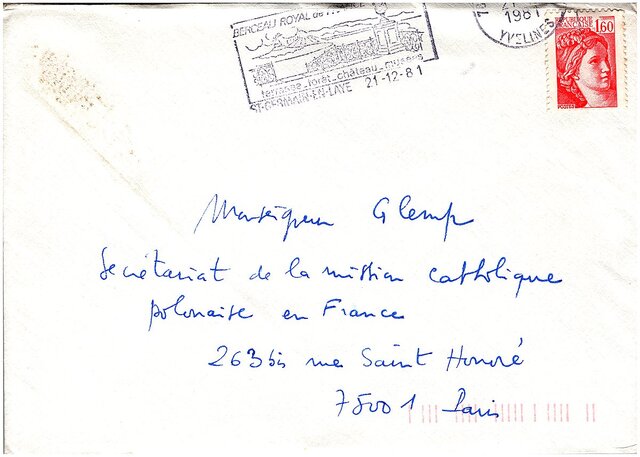 BERCEAU ROYAL de
terrasse_forêt_château_musées
ST-GERMAIN-EN-LAYE 21-12-81
1981
YVELINES
REPUBLIQUE
FRANÇAISE
1,60
Monseigneur Glemp
Secrétariat de la mission catholique
polonaise en France
263 bis rue Saint Honoré
75001 Paris